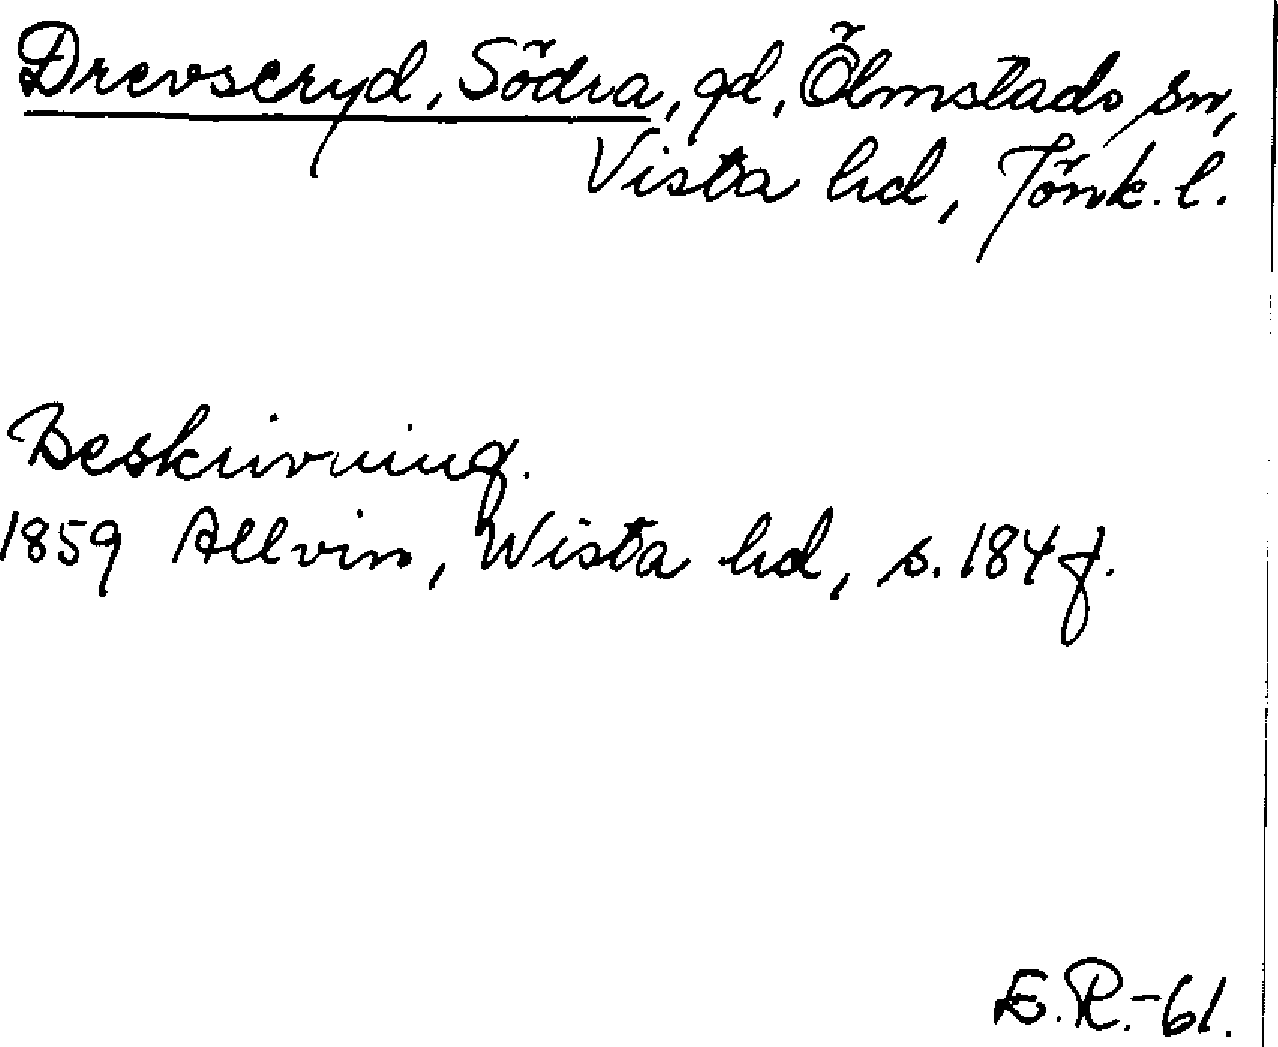 Drevseryd, Södra, gd, Ölmstads sn,
Vista hd, Jönk. l.
Beskrivning.
1859 Allvin, Wista hd, s. 184 f.
E.R.-61.